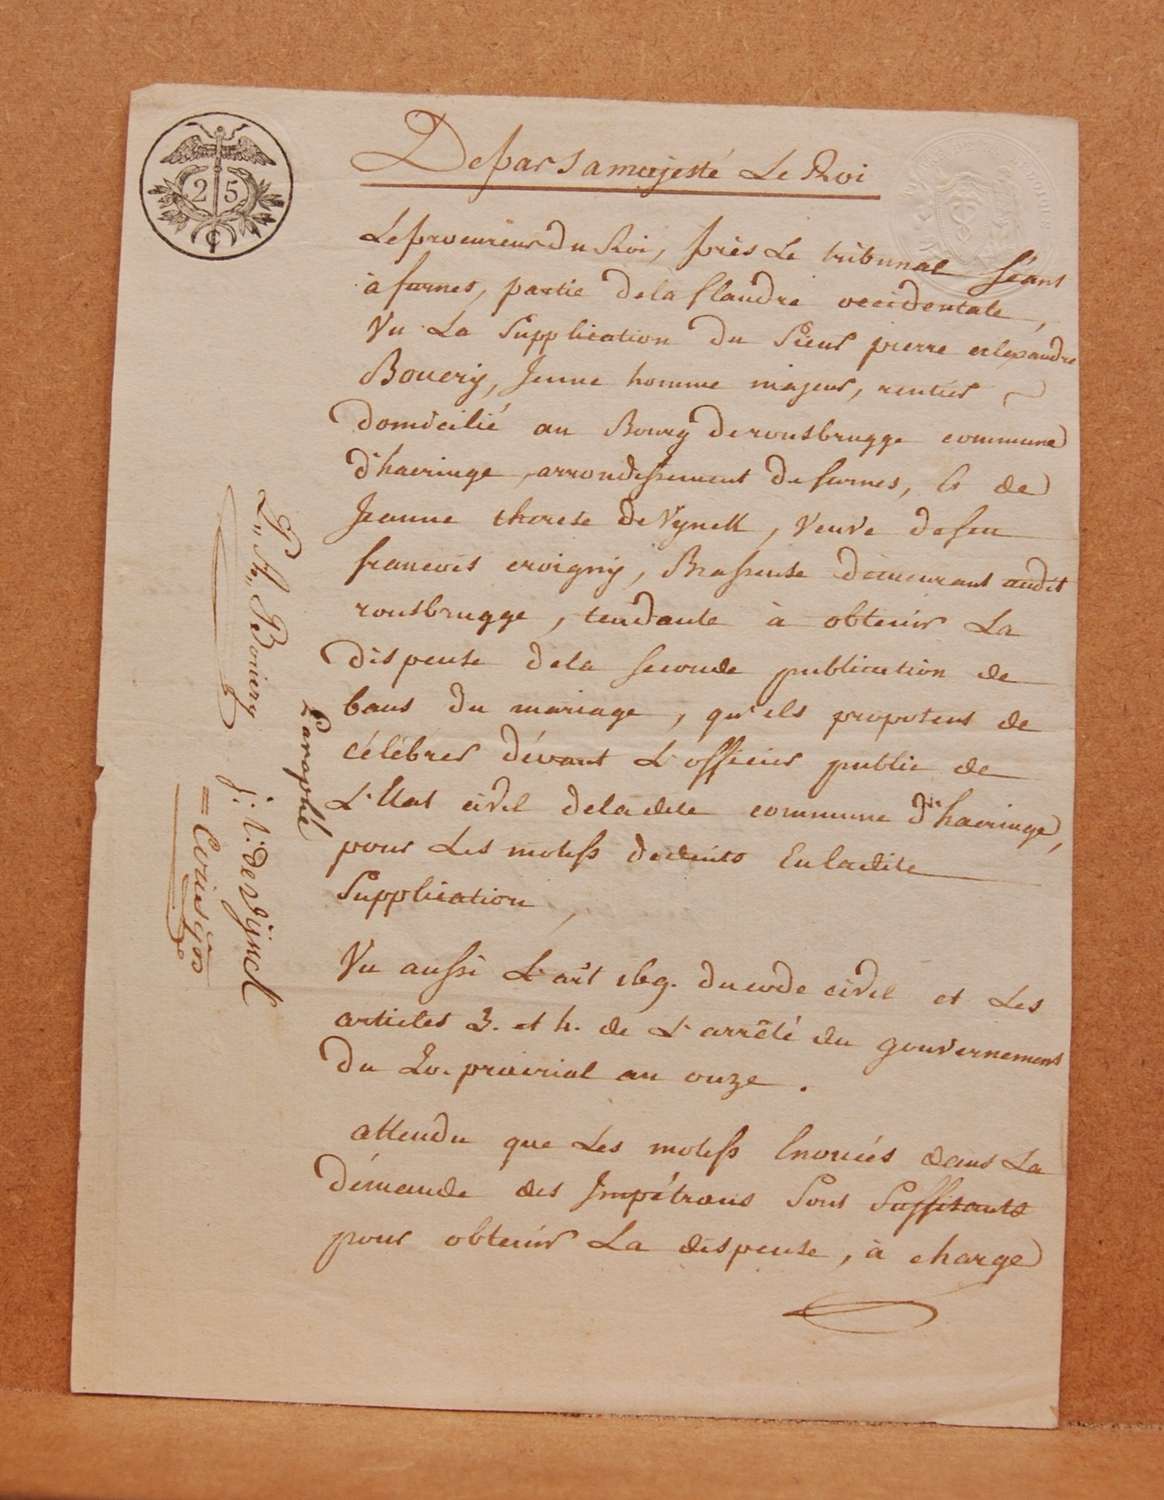 25
C
De par Sa majesté Le Roi
Le procureur du Roi, près Le tribunal Séant
à furnes, partie dela flandre occidentale,
Vu La Supplication du Sieur pierre alexandre
Bouery, Jeune homme majeur, rentier
domicilié au Bourg de rousbrugge commune
d'haeringe, arrondissement de furnes, & de
Jeanne therese De Vynck, Veuve de feu
francois, Brasseuse demeurant audit
rousbrugge, tendante à obtenir La
dispense dela seconde publication de
bans du mariage, qu'ils proposent de
célébrer dévant L'officier public de
L'Etat civil deladite commune d'haeringe,
pour Les motifs deduits Enladite
Supplication,
Vu aussi L'art 169. du code civil et Les
articles 3. et 4. de L'arrêté du gouvernement
du 20. prairial an onze.
attendu que Les motifs Enoncés dans La
démande des Impétrans Sont Suffisants
pour obtenir La dispense, à charge
P. A. Bouery
Paraphé
j: t: de Vijnck